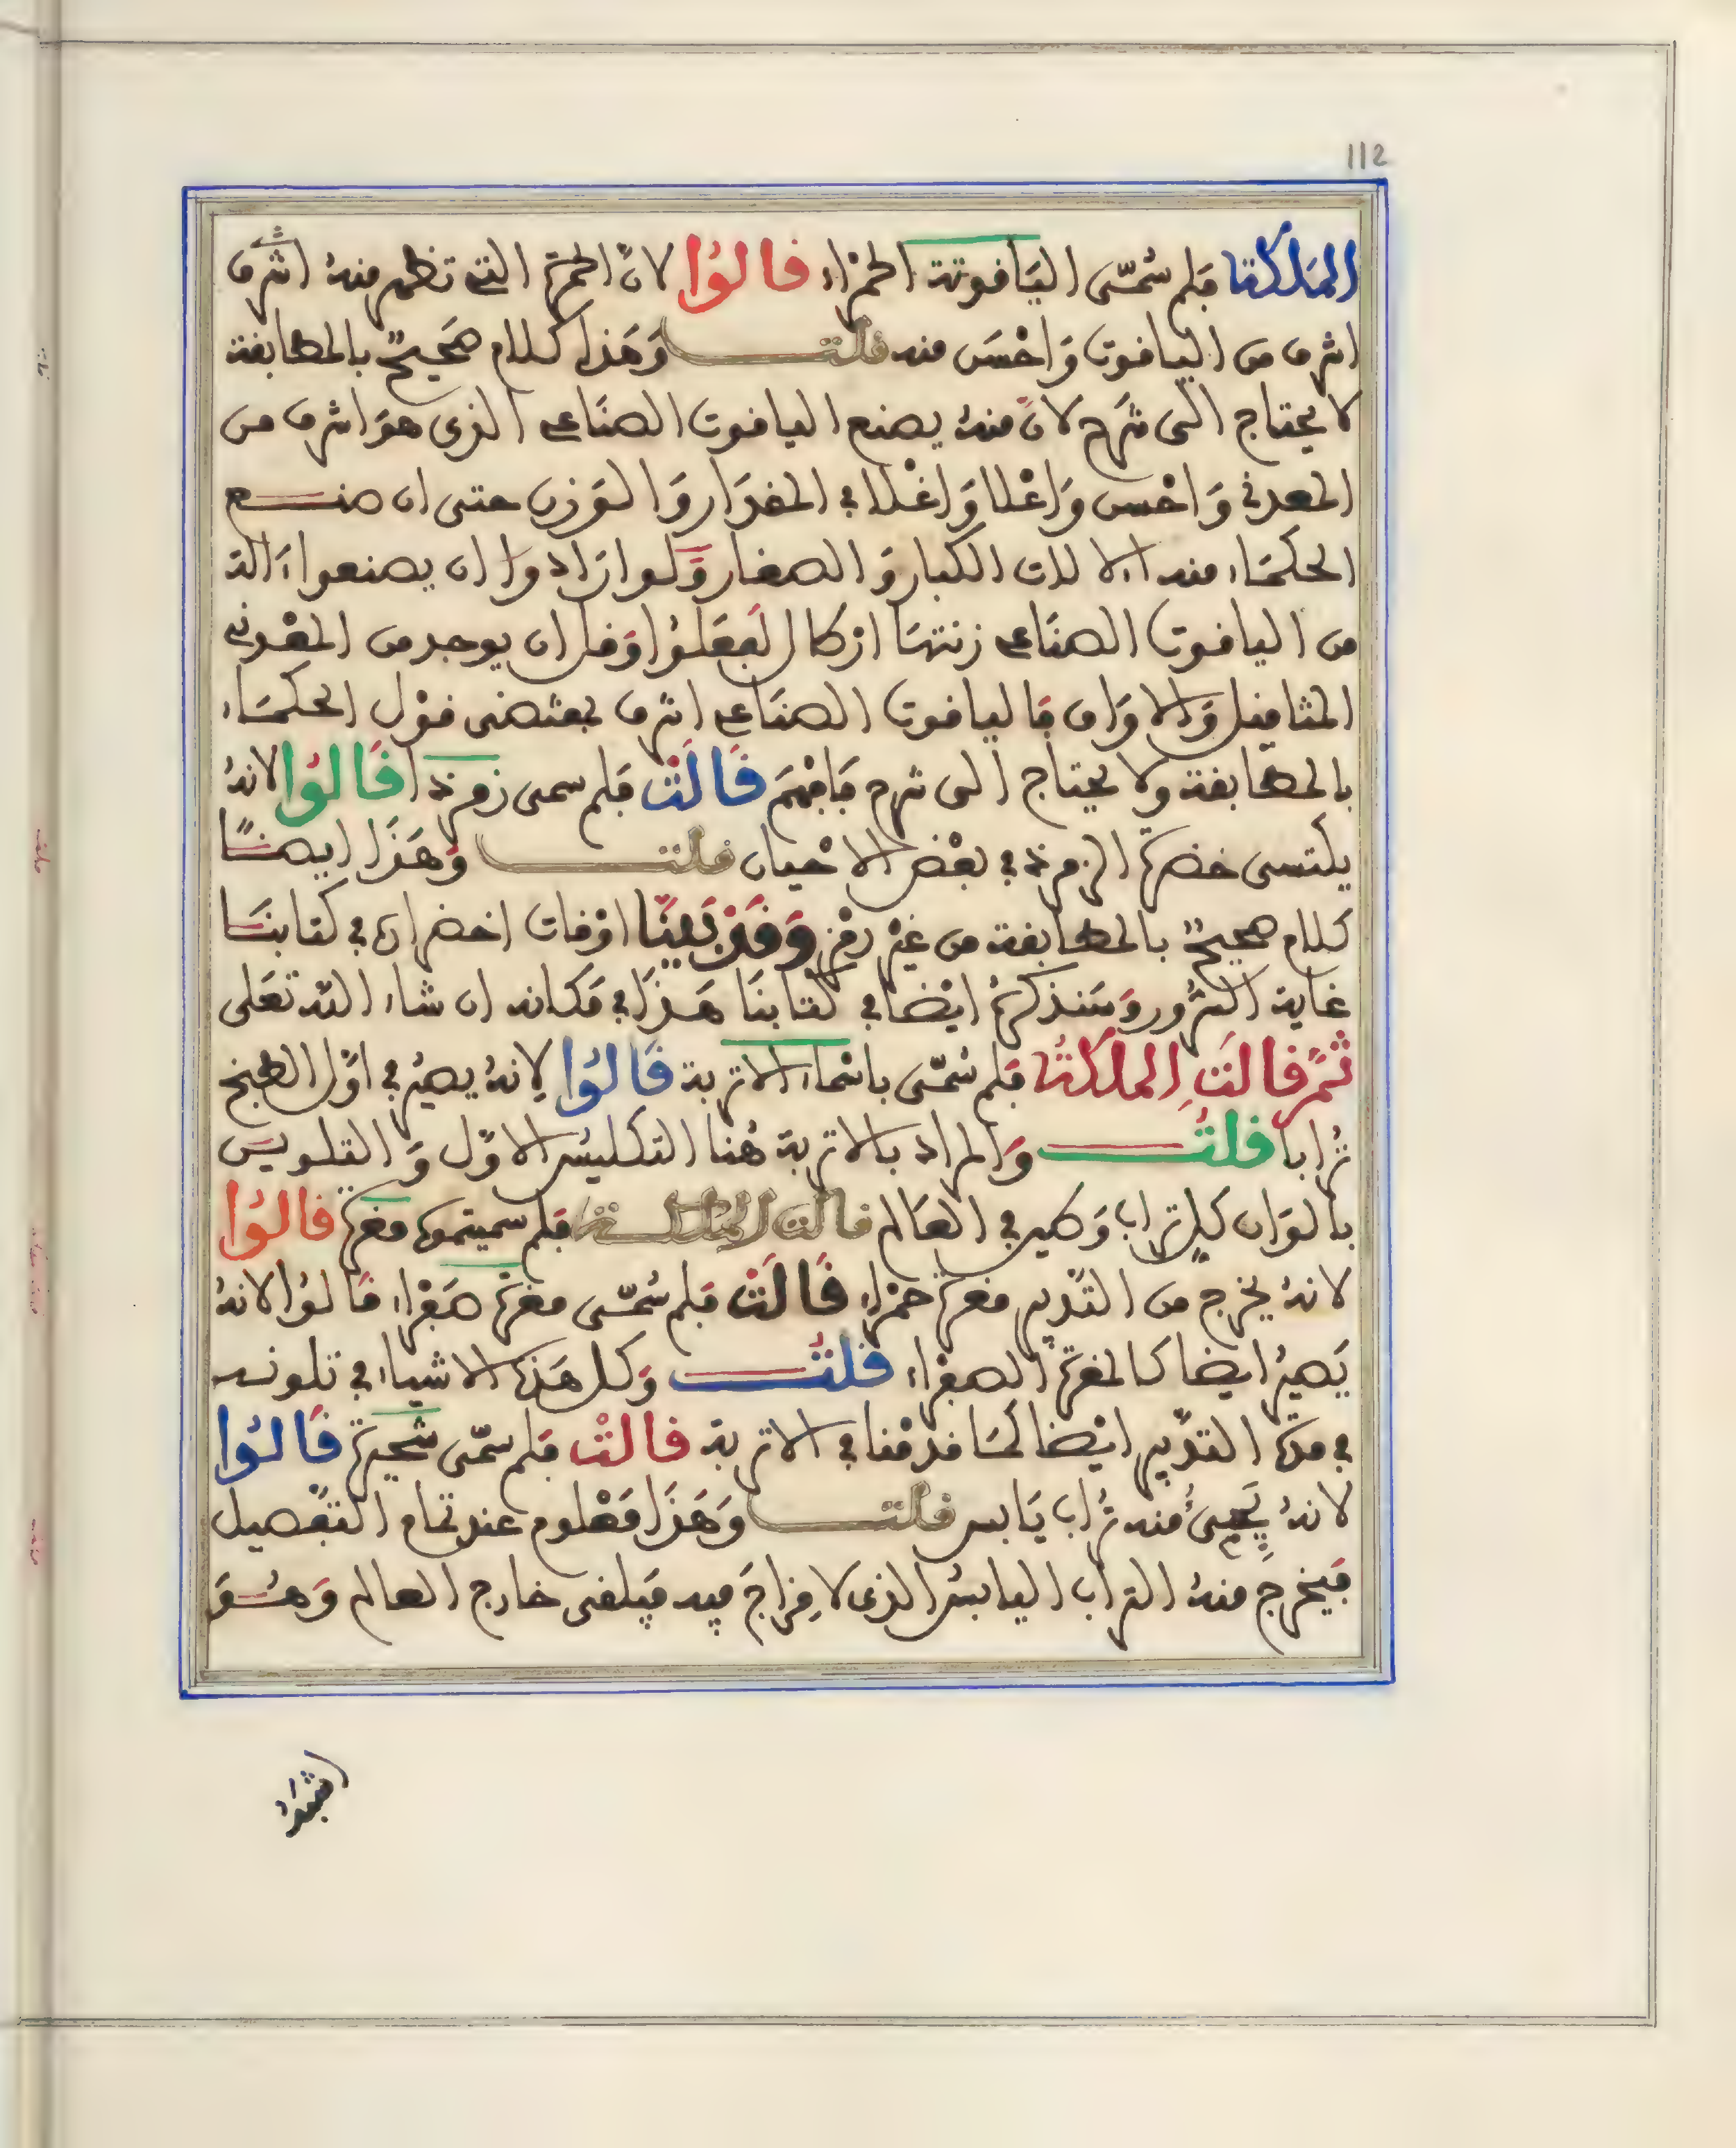 112
الملكة فلم سُمّى الياقوتة الحمراء قالُوا لانّ الحمرة التى تظهر منهُ اشرف
اشرف من الياقوت وَاحْسَن منه قلت وَهَذا كلام صَحيحٌ بالمطابقة
لا يحتاج الى شرح لانّ منهُ يصنع الياقوت الصنَاعى الذى هوَ اشرف من
المعدنى وَاحْسن وَاعْلا وَاغْلا في المقدَار وَالوَزن حتى ان صنع
الحكمَاء منه الالات الكبار وَالصغار وَلوا رَادوا ان يصنعوا ءَالة
من الياقوت الصنَاعى زنتهَا ارْطال لَفعَلوُا وَقل ان يوجد من المعْدنى
المثاقيل وَالاوَاق فَالياقوت الصنَاعى اشرف بمقتضى قوْل الحكمَاء
بالمطابقة ولا يحتاج الى شرح فَافهَم قَالَتْ فَلم سمى زمرذا قَالُوا لانهُ
يكتسى خضرة الزمرذ في بعْض الاحْيان قلت وَهَذَا ايضًا
كلام صحيحٌ بالمطابقة من غير رمْز وَقَدْ بَيَنّا اوْقات اخضراره في كتابنَا
غاية السُّرور وَسَنذكرهُ ايْضا في كتابنَا هَذا في مَكانه ان شاء اللّه تعَلى
ثُمّ قالَتِ الملكةُ فلم سُمّى باسْماء الاتربة قَالُوا لِانهُ يصيرُ في اوّل الطبخ
تُرابا قلتُ وَالمراد بالاتربة هُنا التكليسُ الاوّل وَالتلويس
بالوَان كل تراب وَطين في العَالم قالت الملكة فلم سميتموه مغرة قالُوا
لانهُ يخرج من التدْبير مغرة حمْراء قَالَتْ فلم سُمّى مغرة صَفْراء قَالوُا لانهُ
يَصيرُ ايضا كالمغرة الصفراء قلتُ وَكل هَذه الاشياء في تلونه
في مدة التدْبير ايْضا كمَا قدمْنا في الاتربة قالتْ فلم سمّى شحيرة قَالُوا
لانهُ يَجىءُ منه تُراب يَابس قلت وَهَذَا مَعْلوم عند تمام التفصيل
فيخرج منهُ التراب اليابسُ الذى لا مِزاجَ فيه فيلقى خارج العالم وَهُوَ